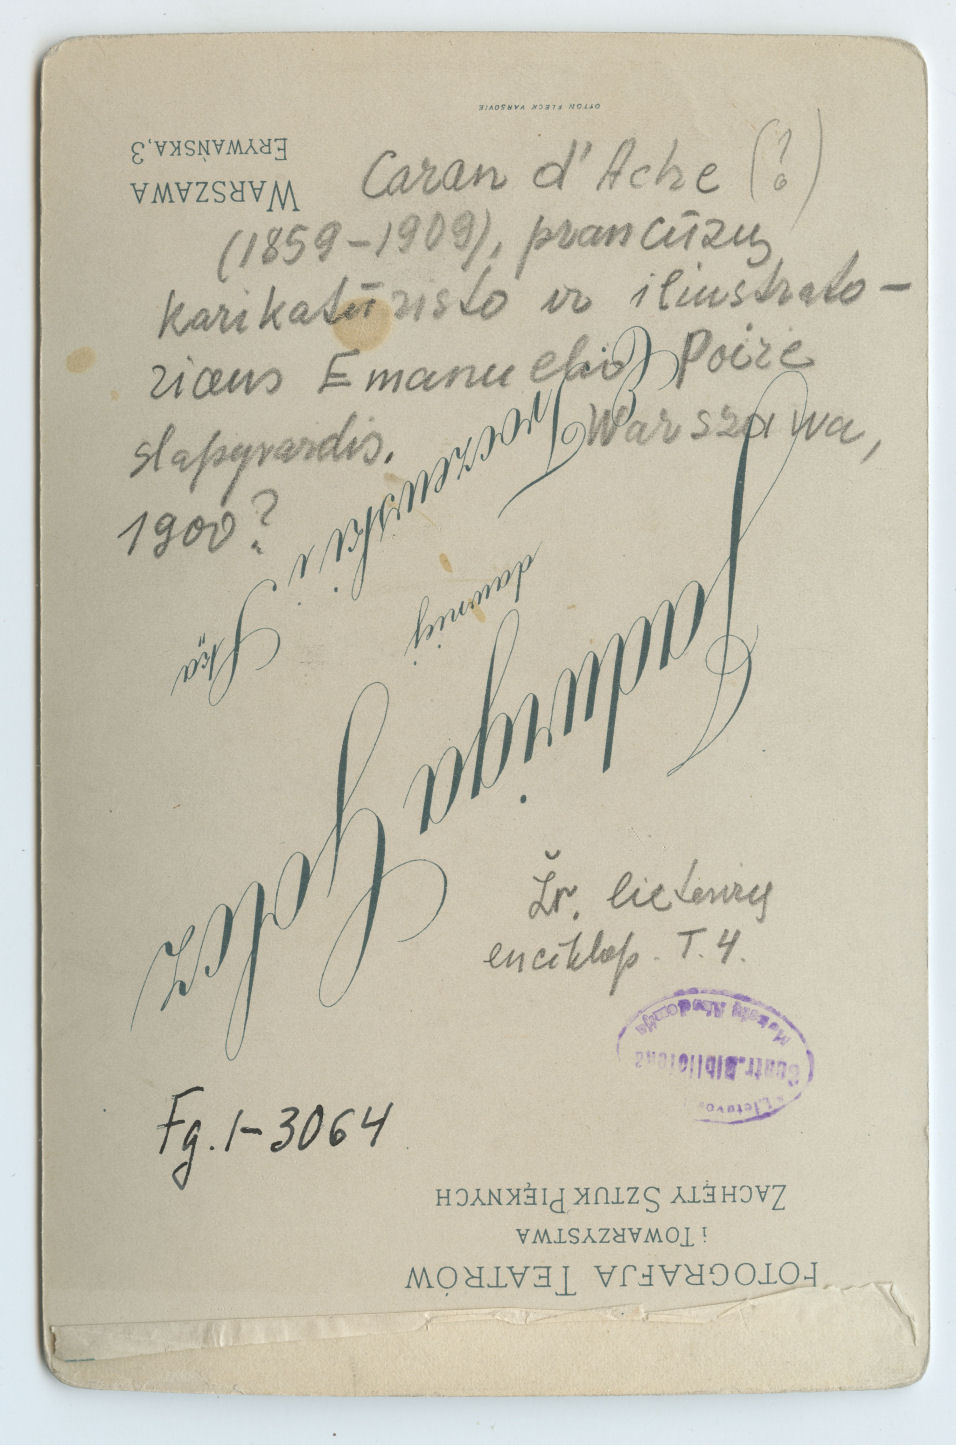 OTTON FLECK VARSOVIE
ERYWAŃSKA,3
WARSZAWA
Caran d'Ache (?)
(1859-1909), prancūzų
karikatūristo ir iliustrato-
riaus Emanuelio Poirė
slapyvardis. Warszawa,
1900?
Jadwiga Golcz
dawniej
Twoczewski i S-ka
Žr. lietuvių
enciklop. T. 4.
Lietuvos
Centr. Biblioteka
Mokslų Akademija
Fg. 1-3064
FOTOGRAFJA TEATRÓW
i TOWARZYSTWA
ZACHĘTY SZTUK PIĘKNYCH